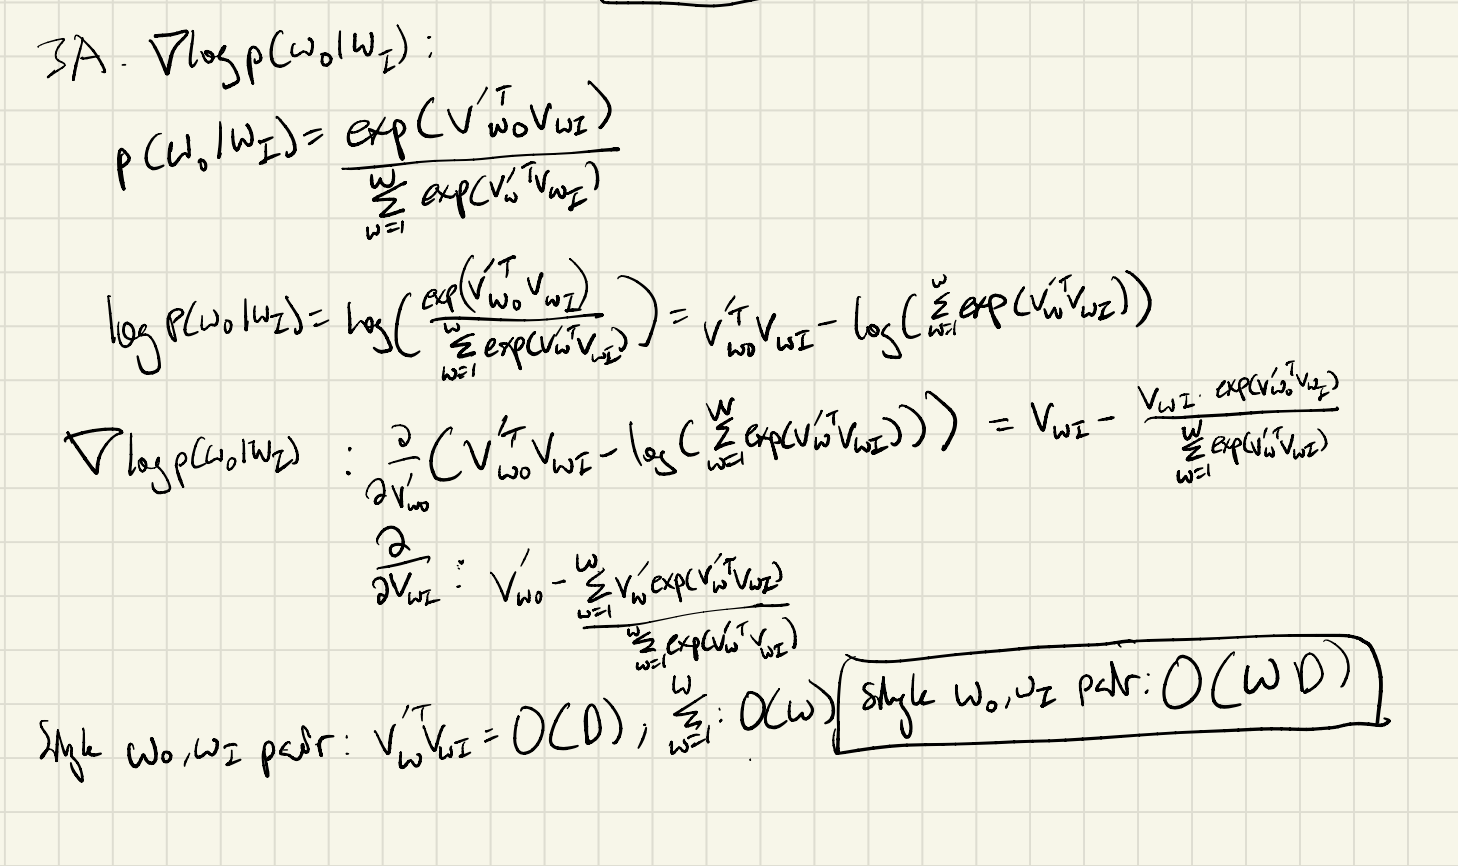 3A. ∇log p(w_O|w_I):
p(w_O|w_I) = exp(v'_{wO}^T v_{wI}) / Σ_{w=1}^{W} exp(v'_w^T v_{wI})
log p(w_O|w_I) = log( exp(v'_{wO}^T v_{wI}) / Σ_{w=1}^{W} exp(v'_w^T v_{wI}) ) = v'_{wO}^T v_{wI} − log( Σ_{w=1}^{W} exp(v'_w^T v_{wI}) )
∇log p(w_O|w_I) : ∂/∂v'_{wO} ( v'_{wO}^T v_{wI} − log( Σ_{w=1}^{W} exp(v'_w^T v_{wI}) ) ) ) = v_{wI} − v_{wI} · exp(v'_{wO}^T v_{wI}) / Σ_{w=1}^{W} exp(v'_w^T v_{wI})
∂/∂v_{wI} : v'_{wO} − Σ_{w=1}^{W} v'_w exp(v'_w^T v_{wI}) / Σ_{w=1}^{W} exp(v'_w^T v_{wI})
Single w_O, w_I pair: v'_w^T v_{wI} = O(D), Σ_{w=1}^{W} : O(W) Single w_O, w_I pair: O(WD)